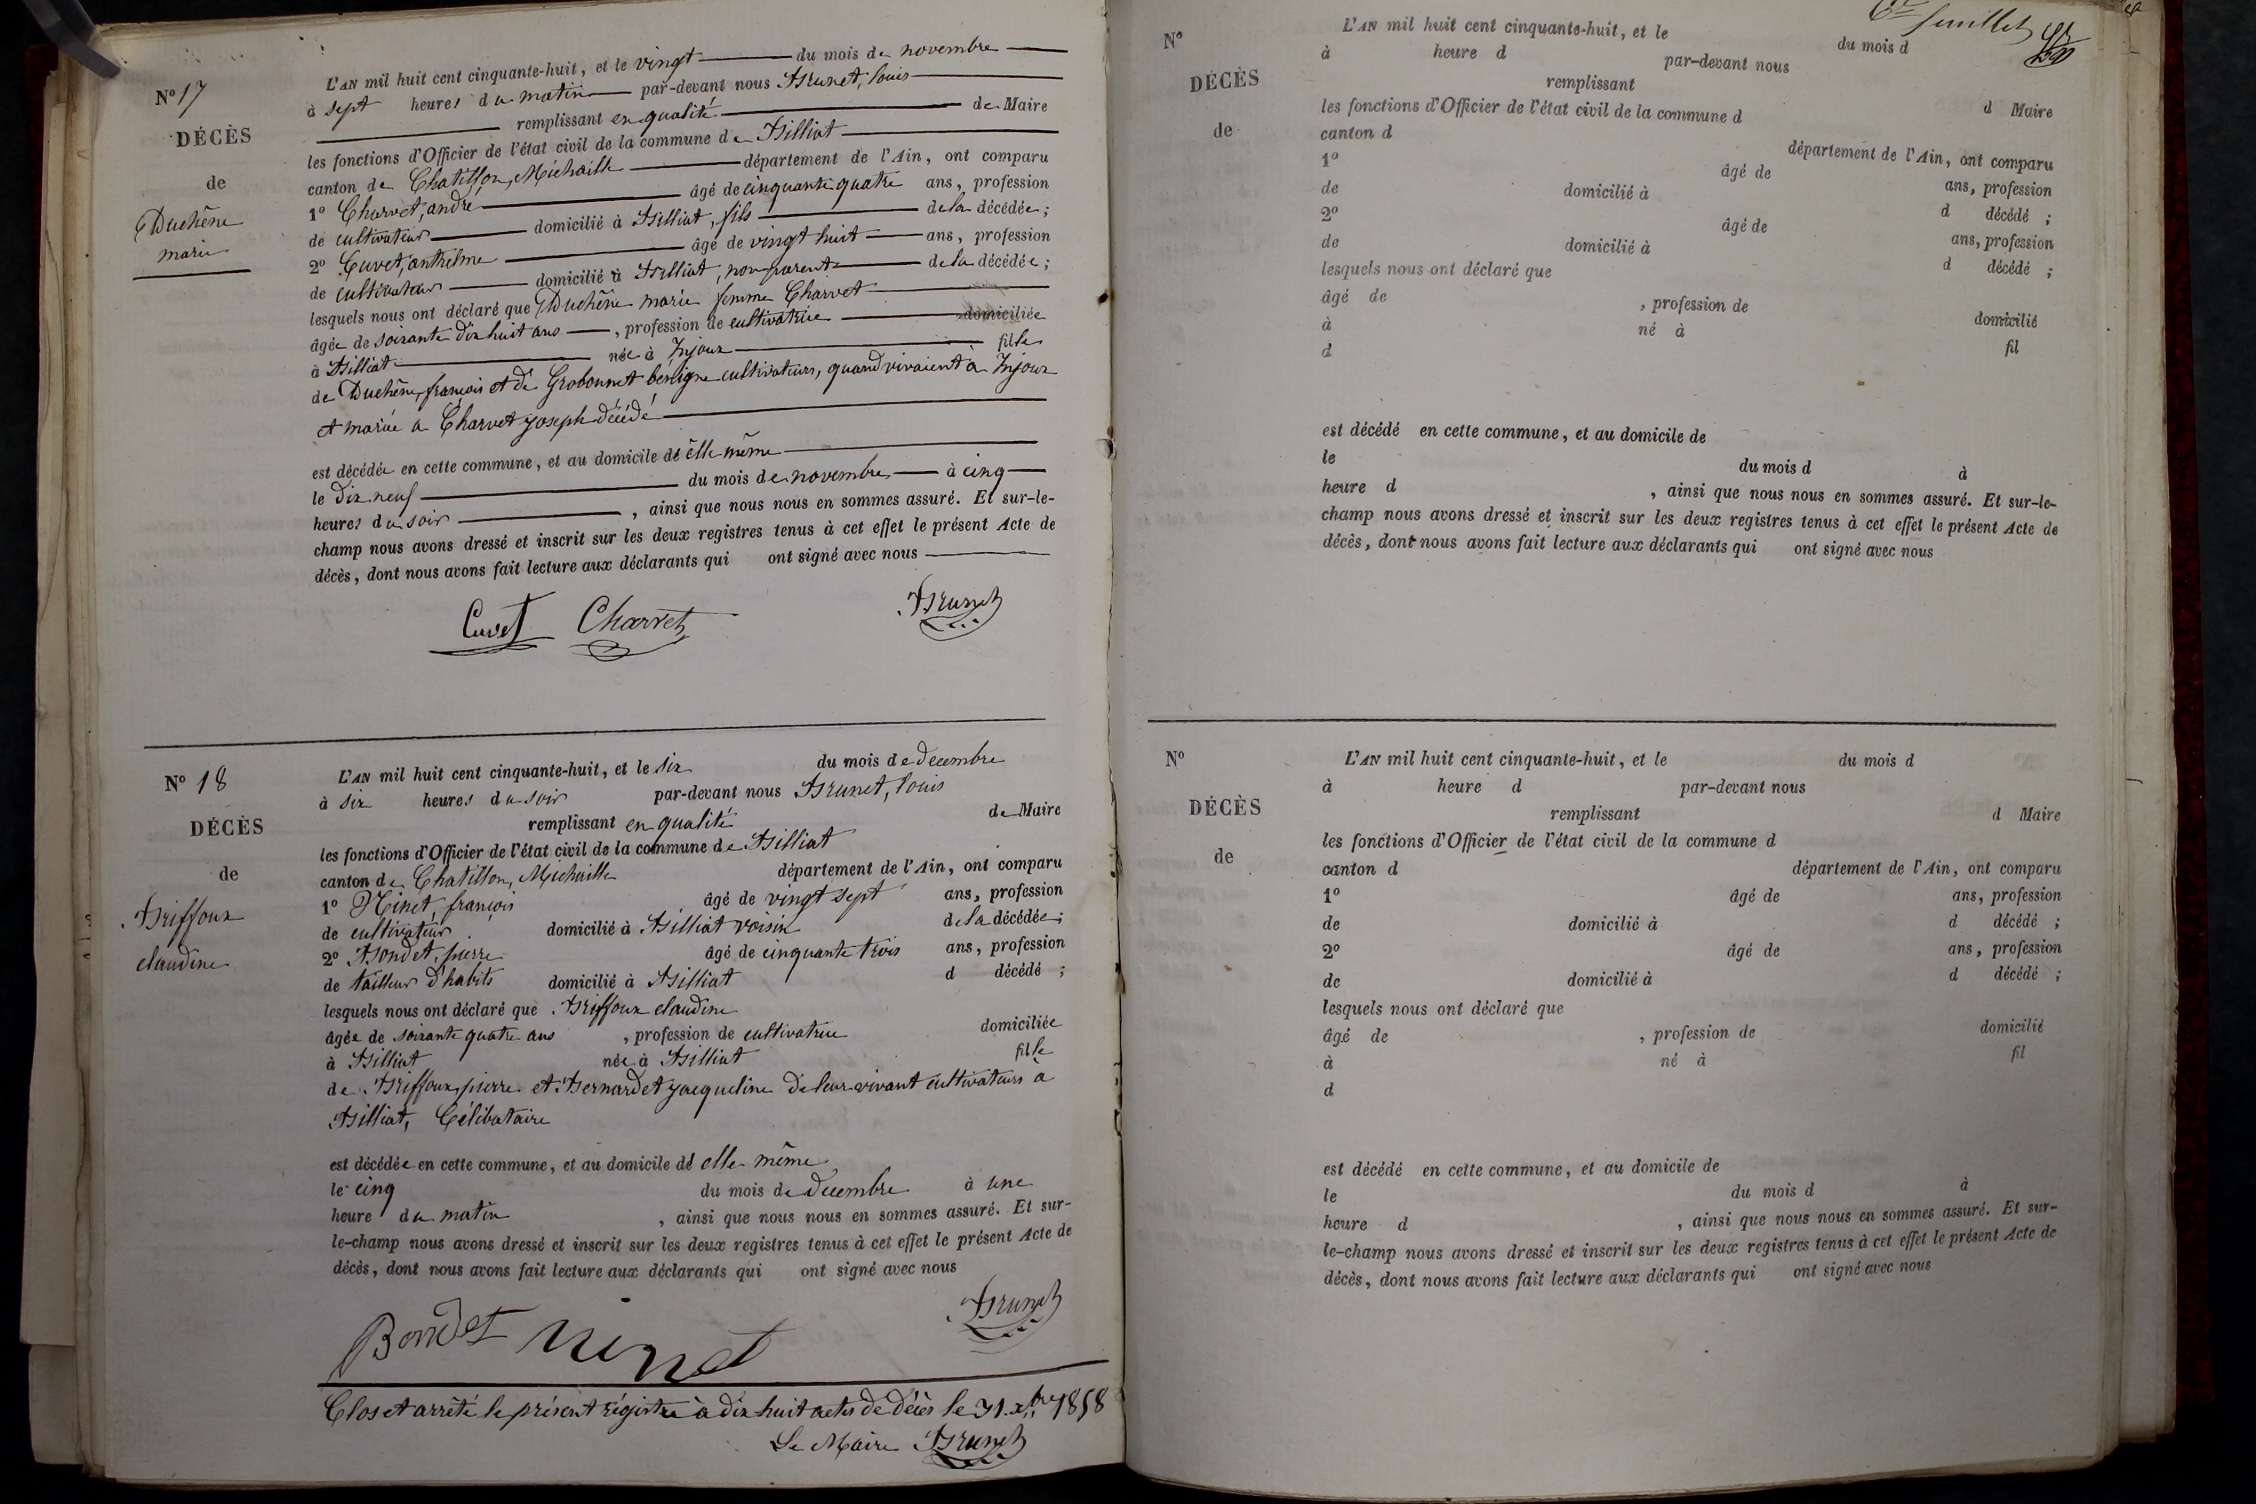 No 17
DÉCÈS
de
Duchêne
marie
L'AN mil huit cent cinquante-huit, et le vingt du mois de novembre
à sept heures du matin par-devant nous Brunet, louis
remplissant en qualité de Maire
les fonctions d'Officier de l'état civil de la commune de Billiat
canton de Chatillon, Michaille département de l'Ain, ont comparu
1o Charvet, andré âgé de cinquante quatre ans, profession
de cultivateur domicilié à Billiat, fils de la décédée;
2o Cuvet, anthelme âgé de vingt huit ans, profession
de cultivateur domicilié à Billiat, non parent de la décédée;
lesquels nous ont déclaré que Duchêne marie femme Charvet
âgée de soixante dix huit ans, profession de cultivatrice domiciliée
à Billiat née à Injoux fille
de Duchêne, françois et de Grobonnet bénigne cultivateurs, quand vivaient à Injoux
et mariée a Charvet joseph décédé
est décédée en cette commune, et au domicile de elle même
le dix neuf du mois de novembre à cinq
heures du soir, ainsi que nous nous en sommes assuré. Et sur-le-
champ nous avons dressé et inscrit sur les deux registres tenus à cet effet le présent Acte de
décès, dont nous avons fait lecture aux déclarants qui ont signé avec nous
Cuvet Charvet Brunet
No 18
DÉCÈS
de
Briffoux
claudine
L'AN mil huit cent cinquante-huit, et le six du mois de decembre
à six heures du soir par-devant nous Brunet, louis
remplissant en qualité de Maire
les fonctions d'Officier de l'état civil de la commune de Billiat
canton de Chatillon, Michaille département de l'Ain, ont comparu
1o Ninet, françois âgé de vingt sept ans, profession
de cultivateur domicilié à Billiat voisin de la décédée;
2o Bondet, pierre âgé de cinquante trois ans, profession
de tailleur d'habits domicilié à Billiat d décédé;
lesquels nous ont déclaré que Briffoux claudine
âgée de soixante quatre ans, profession de cultivatrice domiciliée
à Billiat née à Billiat fille
de Briffoux, pierre et Bernardet jacqueline de leur vivant cultivateurs à
Billiat, Célibataire
est décédée en cette commune, et au domicile de elle même
le cinq du mois de decembre à une
heure du matin, ainsi que nous nous en sommes assuré. Et sur-
le-champ nous avons dressé et inscrit sur les deux registres tenus à cet effet le présent Acte de
décès, dont nous avons fait lecture aux déclarants qui ont signé avec nous
Bondet Ninet Brunet
Clos et arrêté le présent régistre à dix huit actes de décès le 31 xbre 1858
Le Maire Brunet
feuillet
No
DÉCÈS
de
L'AN mil huit cent cinquante-huit, et le du mois d
à heure d par-devant nous
remplissant d Maire
les fonctions d'Officier de l'état civil de la commune d
canton d département de l'Ain, ont comparu
1o âgé de ans, profession
de domicilié à d décédé;
2o âgé de ans, profession
de domicilié à d décédé;
lesquels nous ont déclaré que
âgé de, profession de domicilié
à né à fil
d
est décédé en cette commune, et au domicile de
le du mois d à
heure d, ainsi que nous nous en sommes assuré. Et sur-le-
champ nous avons dressé et inscrit sur les deux registres tenus à cet effet le présent Acte de
décès, dont nous avons fait lecture aux déclarants qui ont signé avec nous
No
DÉCÈS
de
L'AN mil huit cent cinquante-huit, et le du mois d
à heure d par-devant nous
remplissant d Maire
les fonctions d'Officier de l'état civil de la commune d
canton d département de l'Ain, ont comparu
1o âgé de ans, profession
de domicilié à d décédé;
2o âgé de ans, profession
de domicilié à d décédé;
lesquels nous ont déclaré que
âgé de, profession de domicilié
à né à fil
d
est décédé en cette commune, et au domicile de
le du mois d à
heure d, ainsi que nous nous en sommes assuré. Et sur-
le-champ nous avons dressé et inscrit sur les deux registres tenus à cet effet le présent Acte de
décès, dont nous avons fait lecture aux déclarants qui ont signé avec nous